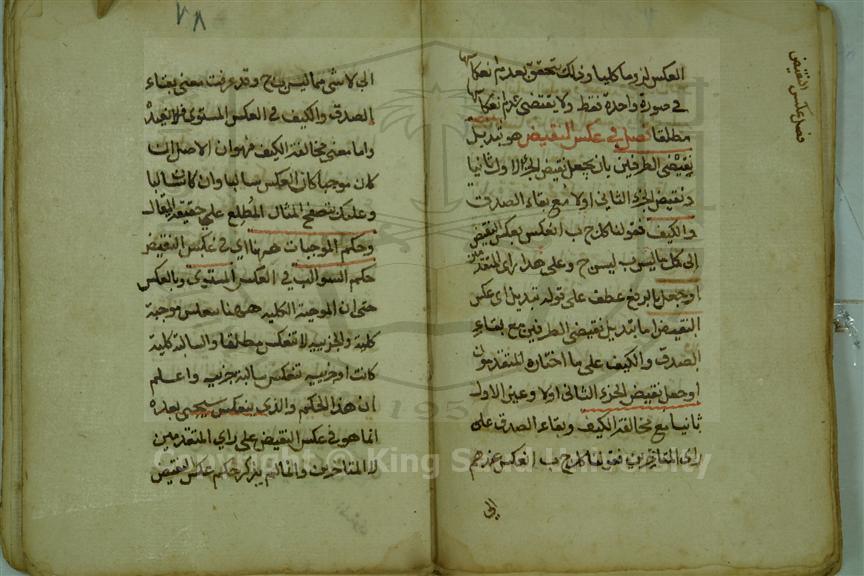 فصل عكس النقيض
العكس لزوما كليا وذلك تحقق بعدم انعكاسها
في صورة واحدة فقط ولا يقتضي عدم انعكاسها
مطلقا فصل في عكس النقيض هو تبديل
نقيضي الطرفين بان يجعل نقيض الجزء الاول ثانيا
ونقيض الجزء الثاني اولا مع بقاء الصدق
والكيف فقولنا كل ج ب انعكس بعكس النقيض
الى كل ما ليس ب ليس ج وعلى هذا راى المتقدمين
او جعل بالرفع عطف على قوله تبديل اى عكس
النقيض اما تبديل نقيضي الطرفين مع بقاء
الصدق والكيف على ما اختاره المتقدمون
او جعل نقيض الجزء الثاني اولا وعين الاول
ثانيا مع مخالفة الكيف وبقاء الصدق على
راى المتاخرين فقولنا كل ج ب انعكس عندهم
الى
٧٨
الى لا شى مما ليس ب ج وقد عرفت معنى بقاء
الصدق والكيف في العكس المستوى فلا نعيده
واما معنى مخالفة الكيف فهو ان الاصل ان
كان موجبا كان العكس سالبا وان كان سالبا
وعليك بتصفح المثال المطلع على حقيقة المقال
وحكم الموجبات ههنا اى في عكس النقيض
حكم السوالب في العكس المستوى وبالعكس
حتى ان الموجبة الكلية ههنا تنعكس موجبة
كلية والجزئية لا تنعكس مطلقا والسالبة كلية
كانت او جزئية تنعكس سالبة جزئية واعلم
ان هذا الحكم والذى سيجى بعده
انما هو في عكس النقيض على راى المتقدمين
لا المتاخرين وانما لم يذكر حكم عكس النقيض
Copyright © King Saud University
195